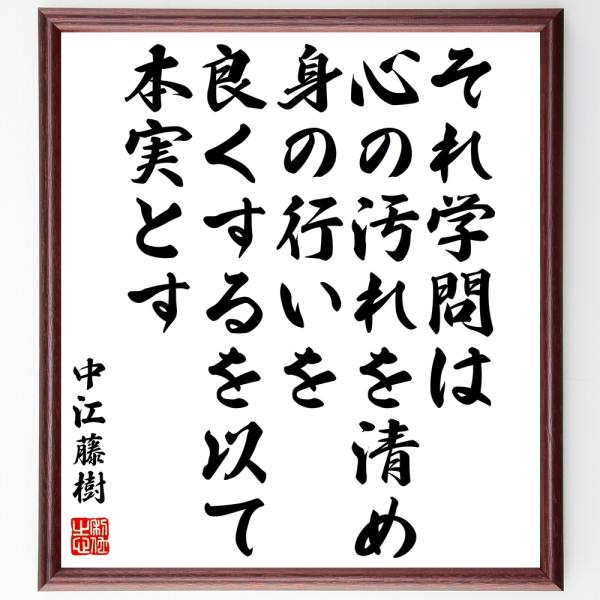 それ学問は
心の汚れを清め
身の行いを
良くするを以て
本実とす
中江藤樹